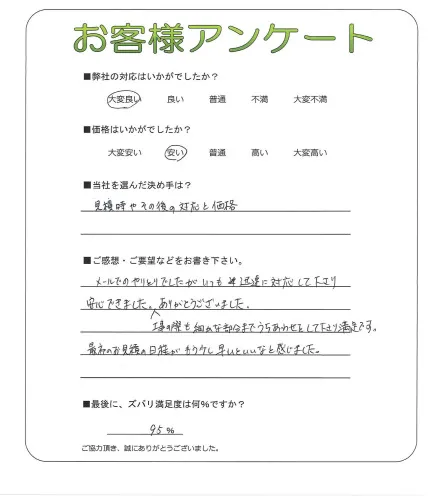 お客様アンケート
■弊社の対応はいかがでしたか？
大変良い 良い 普通 不満 大変不満
■価格はいかがでしたか？
大変安い 安い 普通 高い 大変高い
■当社を選んだ決め手は？
見積時やその後の対応と価格
■ご感想・ご要望などをお書き下さい。
メールでのやりとりでしたがいつも迅速に対応して下さり
安心できました。ありがとうございました。
工事の際も細かな部分までうちあわせをして下さり満足です。
最初のお見積の日程がもう少し早いといいなと感じました。
■最後に、ズバリ満足度は何％ですか？
95％
ご協力頂き、誠にありがとうございました。